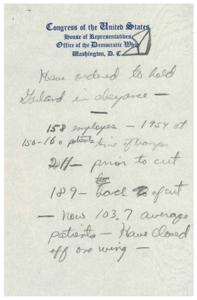 Congress of the United States
House of Representatives
Office of the Democratic Whip
Washington, D. C.
Have ordered to hold
in abeyance —
158 employees — 1954 at
150-160 patients time of
211 — prior to cut
189 — back of cut
— Now 103.7 average
patients — Have closed
off one wing —